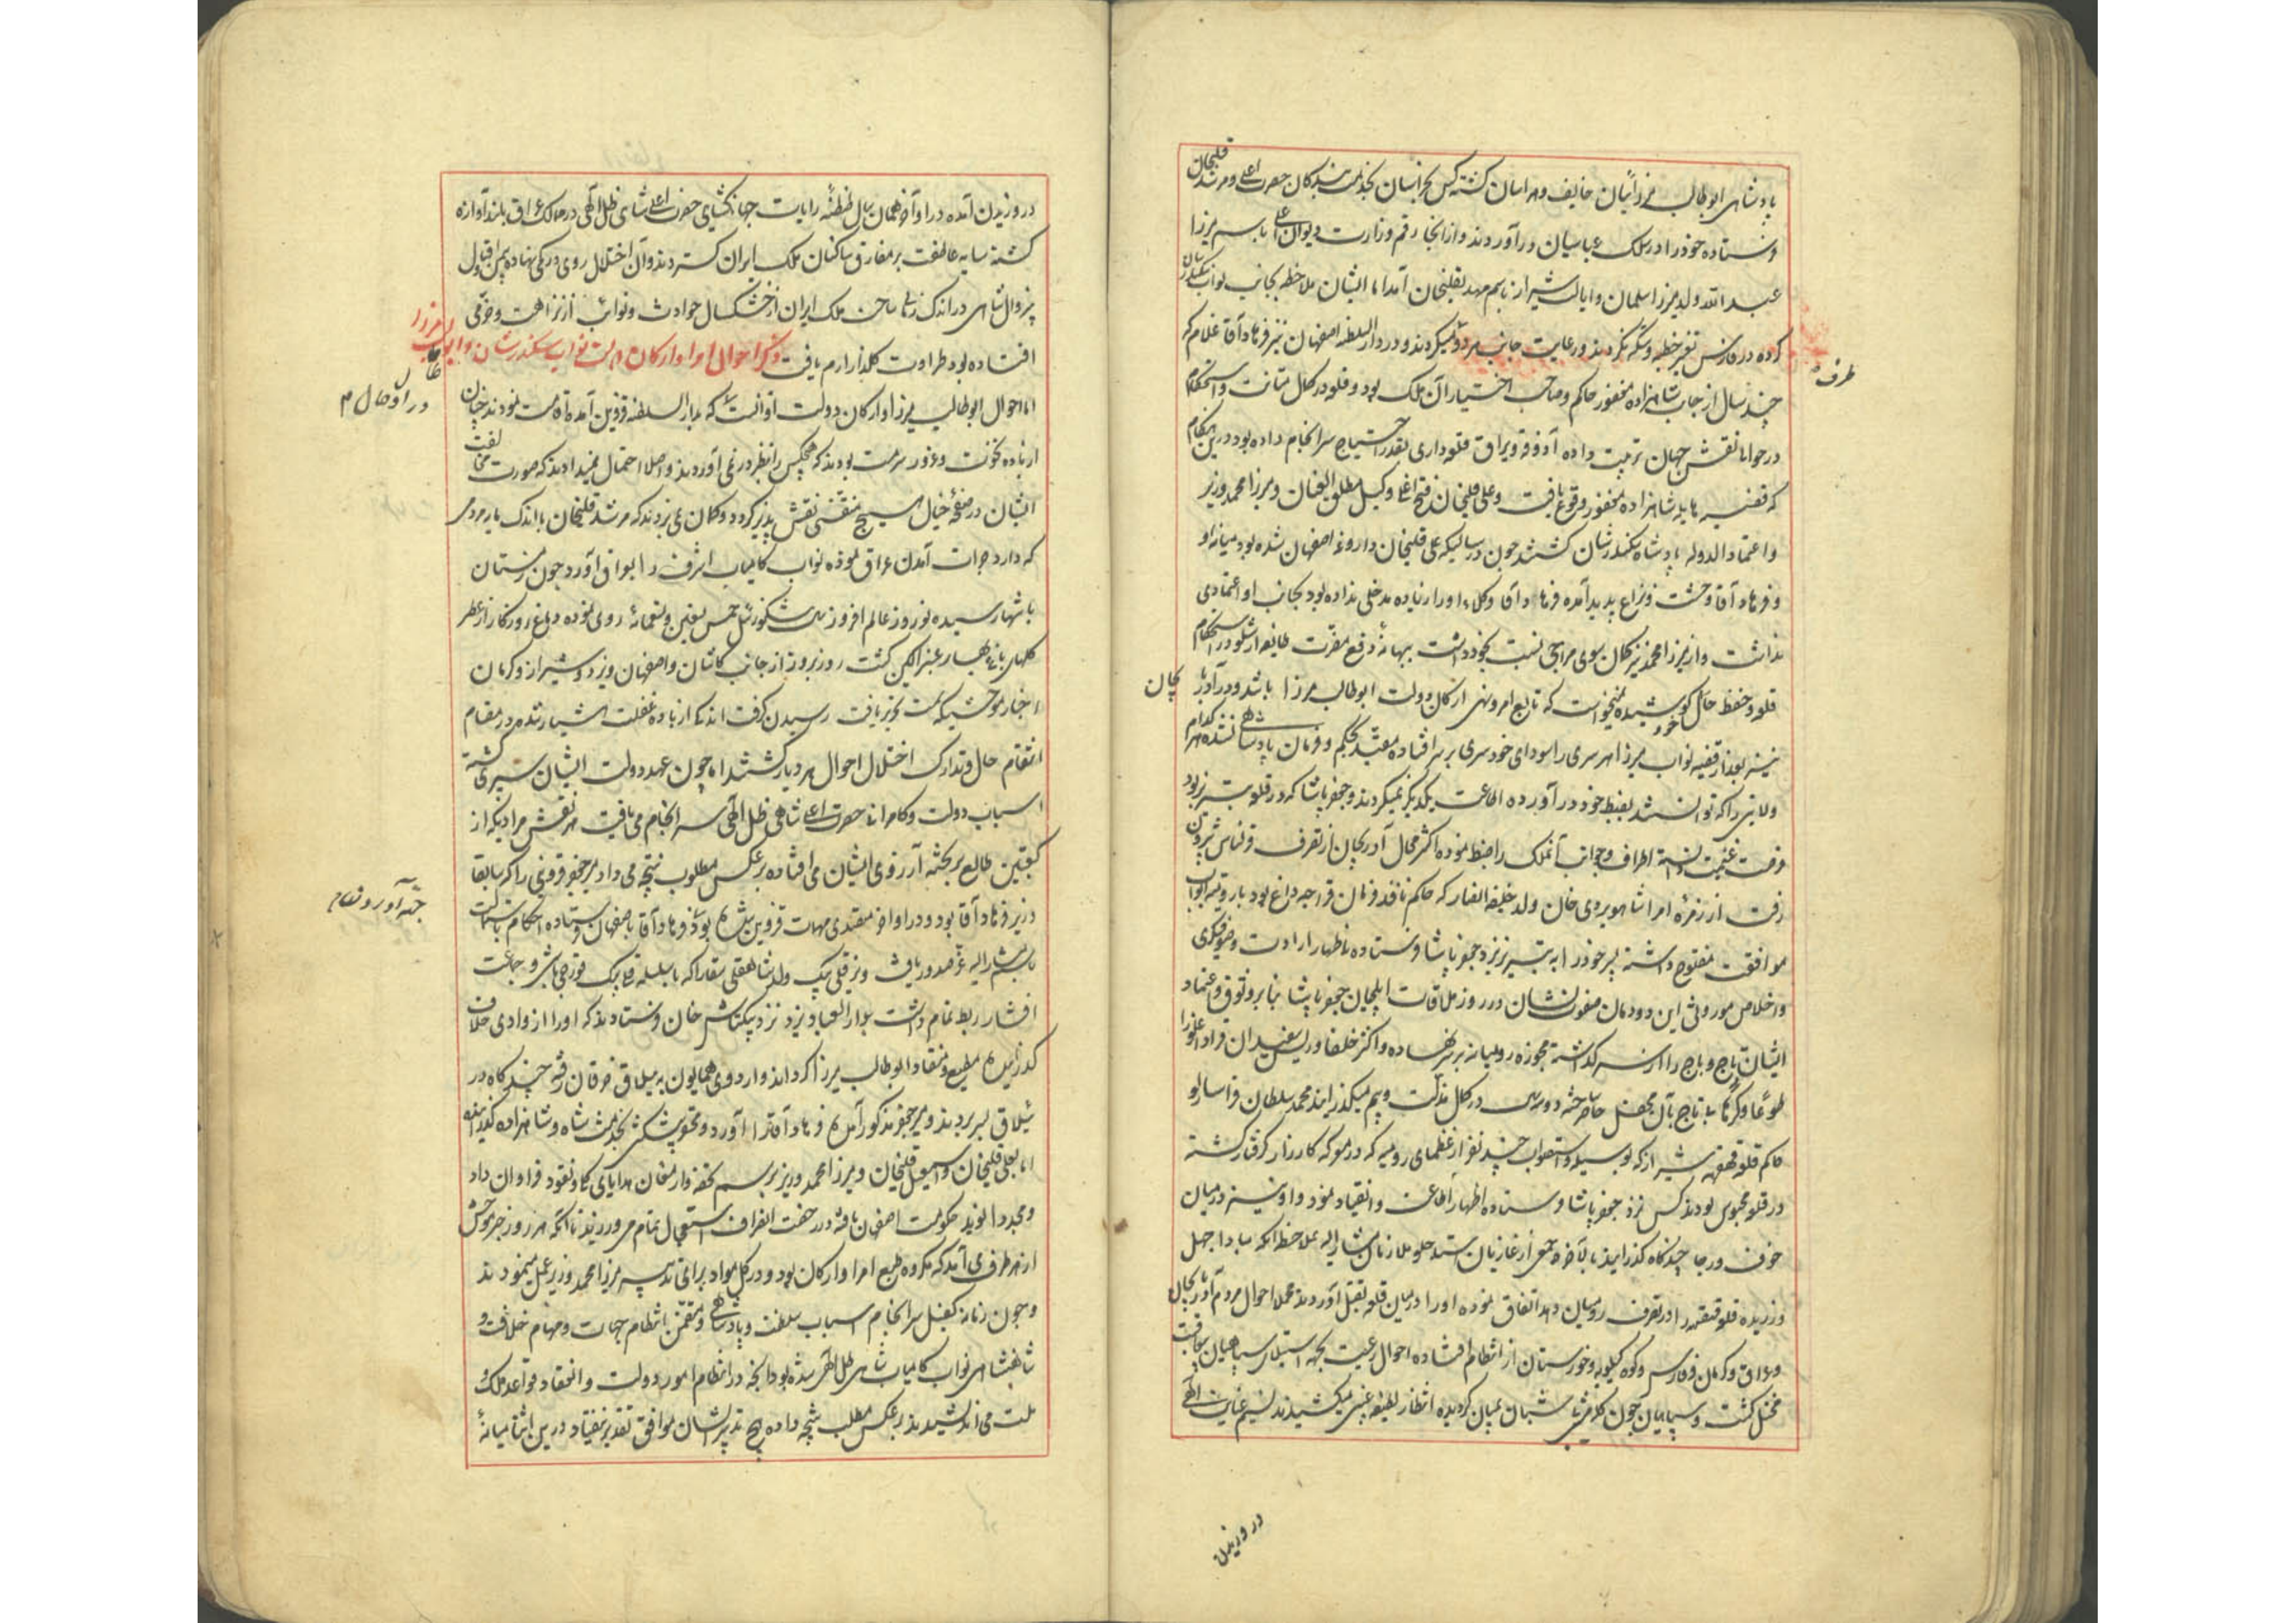 پادشاهی ابوطالب میرزا ایشان خایف و هراسان گشته کس بخراسان بخدمت بندگان حضرت اعلی و مرشد قلیخان
فرستاده خود را در سلک عباسیان درآوردند و از آنجا رقم وزارت دیوان اعلی باسم میرزا
عبدالله ولد میرزا سلمان و ایالت شیراز باسم مهدیقلیخان آمد اما ایشان ملاحظه جانب نواب سکندرشان
کرده در فارس تغییر خطبه و سکه نکردند و رعایت جانب مردو میکردند و در دارالسلطنه اصفهان نیز فرهاد آقا غلام که
طرف
چند سال از جانب شاهزاده مغفور حاکم و صاحب اختیار آن ملک بود و قلعه در کمال متانت و استحکام
در حوالی نقش جهان ترتیب داده آذوقه و یراق قلعه داری بقدر احتیاج سرانجام داده بود درین هنگام
که قضیه هایله شاهزاده مغفور وقوع یافت و علی قلیخان فتح اغلی وکیل مطلق العنان و میرزا محمد وزیر
و اعتمادالدوله پادشاه سکندرشان گشتند چون در سالیکه علی قلیخان داروغه اصفهان شده بود میانه او
و فرهاد آقا وحشت و نزاع پدید آمده فرهاد آقا وکلاء او را زیاده مدخلی نداده بود بجانب او اعتمادی
نداشت و از میرزا محمد نیز گمان سوی مزاجی نسبت بخود داشت ببهانه دفع مضرت طایفه ارشلو در استحکام
قلعه و حفظ حال خود کوشیده میخواست که تابع امر و نهی ارکان دولت ابوطالب میرزا باشد و در آذربایجان
نیز بعد از قضیه نواب میرزا هر سری را سودای خودسری بر سر افتاده مقید بحکم و فرمان پادشاهی نشده هر کدام
ولایتی را که توانستند بضبط خود درآورده اطاعت یکدیگر نمیکردند و جعفر پاشا که در قلعه تبریز بود
فرصت غنیمت دانسته اطراف و جوانب آنملک را ضبط نموده اکثر محال آذربایجان از تصرف قزلباش بیرون
رفت از زمره امرا شاهویردی خان ولد خلیفه انصار که حاکم نافذ فرمان قراجه داغ بود با رومیه ابواب
موافقت مفتوح داشته پسر خود را به تبریز نزد جعفر پاشا فرستاده باظهار ارادت و صوفیگری
و اخلاص موروثی این دودمان صفوت نشان در روز ملاقات ایلچیان جعفر پاشا بنابر وثوق و اعتماد
ایشان تاج و باج را از سر گذاشته مجوزه رومیانه بر سر نهاده و اکثر خلفا و ریش سفیدان قراداغلو را
طوعا و کرها بی تاج بآن محفل حاضر ساخته دو سال در کمال مذلت و بیم میگذرانید محمد سلطان قراسارلو
حاکم قلعه قهقهه شیراز که بوسیله و استصواب چند نفر از عظمای رومیه که در معرکه کارزار گرفتار گشته
در قلعه محبوس بودند کس نزد جعفر پاشا فرستاده اظهار اطاعت و انقیاد نمود و او نیز در میان
خوف و رجا چندگاه گذرانید تا بآخره جمعی از غازیان استجلو ملازمان مشارالیه بملاحظه آنکه مبادا جهل
ورزیده قلعه قهقهه را در تصرف رومیان دهد اتفاق نموده او را در میان قلعه بقتل آوردند مجملا احوال مردم آذربایجان
و عراق و کرمان و فارس و کوه کیلویه و خوزستان از انتظام افتاده احوال رعیت بجهت استیلای سپاهیان بی عاقبت
مختل گشت و سپاهیان چون گله بی شبان پریشان گردیده انتظار لطیفه غیبی میکشیدند نسیم عنایت الهی
در وزیدن
در وزیدن آمده در اواخر همان سال طنطنه رایات جهانگشای حضرت اعلی شاهی ظل الهی در ممالک عراق بلندآوازه
گشته سایه عاطفت بر مفارق ساکنان ملک ایران گستردند و آن اختلال روی در کمی نهاده بیمن اقبال
بیزوال شاهی در اندک زمانی ساحت ملک ایران از خشکسال حوادث و نوائب از نزاهت و خرمی
افتاده بود طراوت گلزار ارم یافت ذکر احوال امرا و ارکان دولت نواب سکندرشان و ابوطالب میرزا
اما احوال ابوطالب میرزا و ارکان دولت او آنست که بدارالسلطنه قزوین آمده اقامت نمودند چنان
از باده نخوت و غرور سرمست بودند که هیچکس را بنظر در نمی آوردند و اصلا احتمال نمیدادند که صورت مخالفت
ایشان در صفحه خیال هیچ متنفسی نقش پذیر گردد و گمان نمی بردند که مرشد قلیخان با اندک مایه مردمی
که دارد جرأت آمدن عراق نموده نواب کامیاب اشرف را بعراق آورد چون زمستان
بانتها رسیده نوروز عالم افروز سنه شکورئیل خمس تسعین و تسعمائه روی نموده دماغ روزگار از عطر
گلهای باغ بهار عنبرآگین گشت روز بروز از جانب کاشان و اصفهان و یزد و شیراز و کرمان
اخبار موحشه که سمت تحریر یافت رسیدن گرفت اندکی از باده غفلت هشیار شده در مقام
انتظام حال و تدارک اختلال احوال هر دیار گشتند اما چون عهد دولت ایشان سپری گشته
اسباب دولت و کامرانی حضرت اعلی شاهی ظل الهی سرانجام می یافت هر نقش مرادیکه از
کعبتین طالع بر تخته آرزوی ایشان می افتاد برعکس مطلوب نتیجه می داد میر جعفر قزوینی را که سابقا
وزیر فرهاد آقا بود و در اواخر متصدی مهمات قزوین شده بود نزد فرهاد آقا باصفهان فرستاده احکام استمالت
باسم مشارالیه عز صدور یافت و نیز قلی بیک ولد شاهقلی سقا را که با سلسله قلی بیک قورچی باشی و جماعت
افشار ربط تمام داشت بدارالعباد یزد نزد بیکتاش خان فرستادند که او را از وادی خلاف
گذرانیده مطیع و منقاد ابوطالب میرزا گرداند و اردوی همایون به ییلاق خرقان رفته چندگاه در
ییلاق بسر بردند و میر جعفر مذکور آمده فرهاد آقا را آورد و محقر پیشکش بخدمت شاه و شاهزاده گذرانیده
اما بعلی قلیخان و اسمعیل قلیخان و میرزا محمد وزیر برسم تحفه و ارمغان هدایای کلی و نقود فراوان داد
و مجددا نوید حکومت اصفهان یافته در رخصت انصراف استعجال تمام می ورزید تا آنکه هر روز خبر موحش
از هر طرف می آمد که مکروه طبع امرا و ارکان بود و در کل مواد برای و تدبیر میرزا محمد وزیر عمل مینمودند
و چون زمانه کفیل سرانجام اسباب سلطنت و پادشاهی و متضمن انتظام مهمات و مهام خلافت و
شاهنشاهی نواب کامیاب شاهی ظل الهی شده بود آنچه در انتظام امور دولت و انعقاد قواعد ملک و
ملت می اندیشیدند برعکس مطلب نتیجه داده هیچ تدبیر ایشان موافق تقدیر نیفتاد درین اثنا میانه